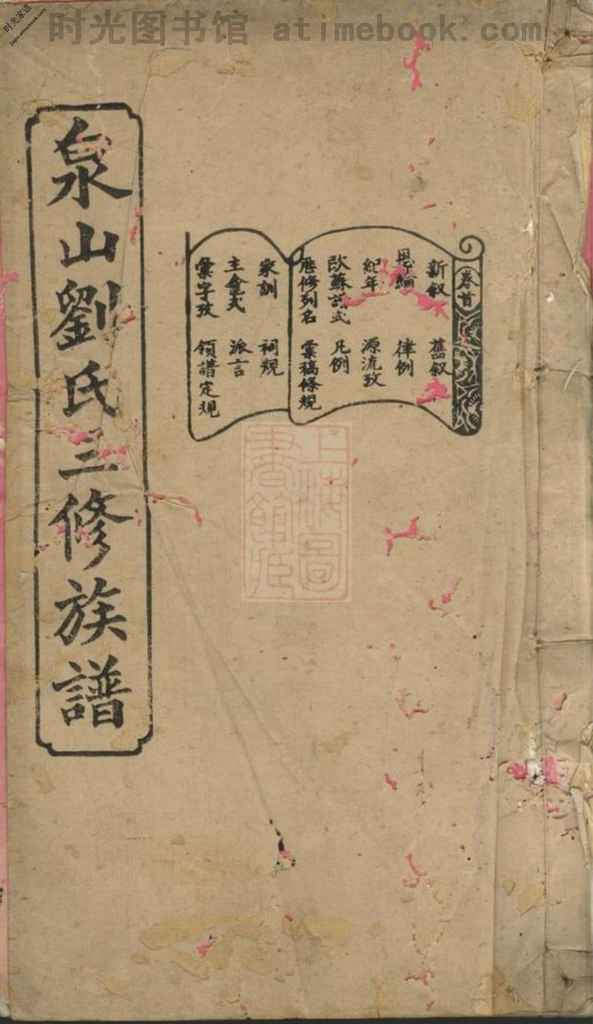 时光图书馆 atimebook.com
泉山劉氏三修族譜
卷首
新叙 舊叙
恩綸 律例
紀年 源流攷
欧蘇譜式 凡例
歷修列名 彙稿條規
家訓 祠規
主龕式 派言
彙字攷 領譜定規
上海圖書館藏